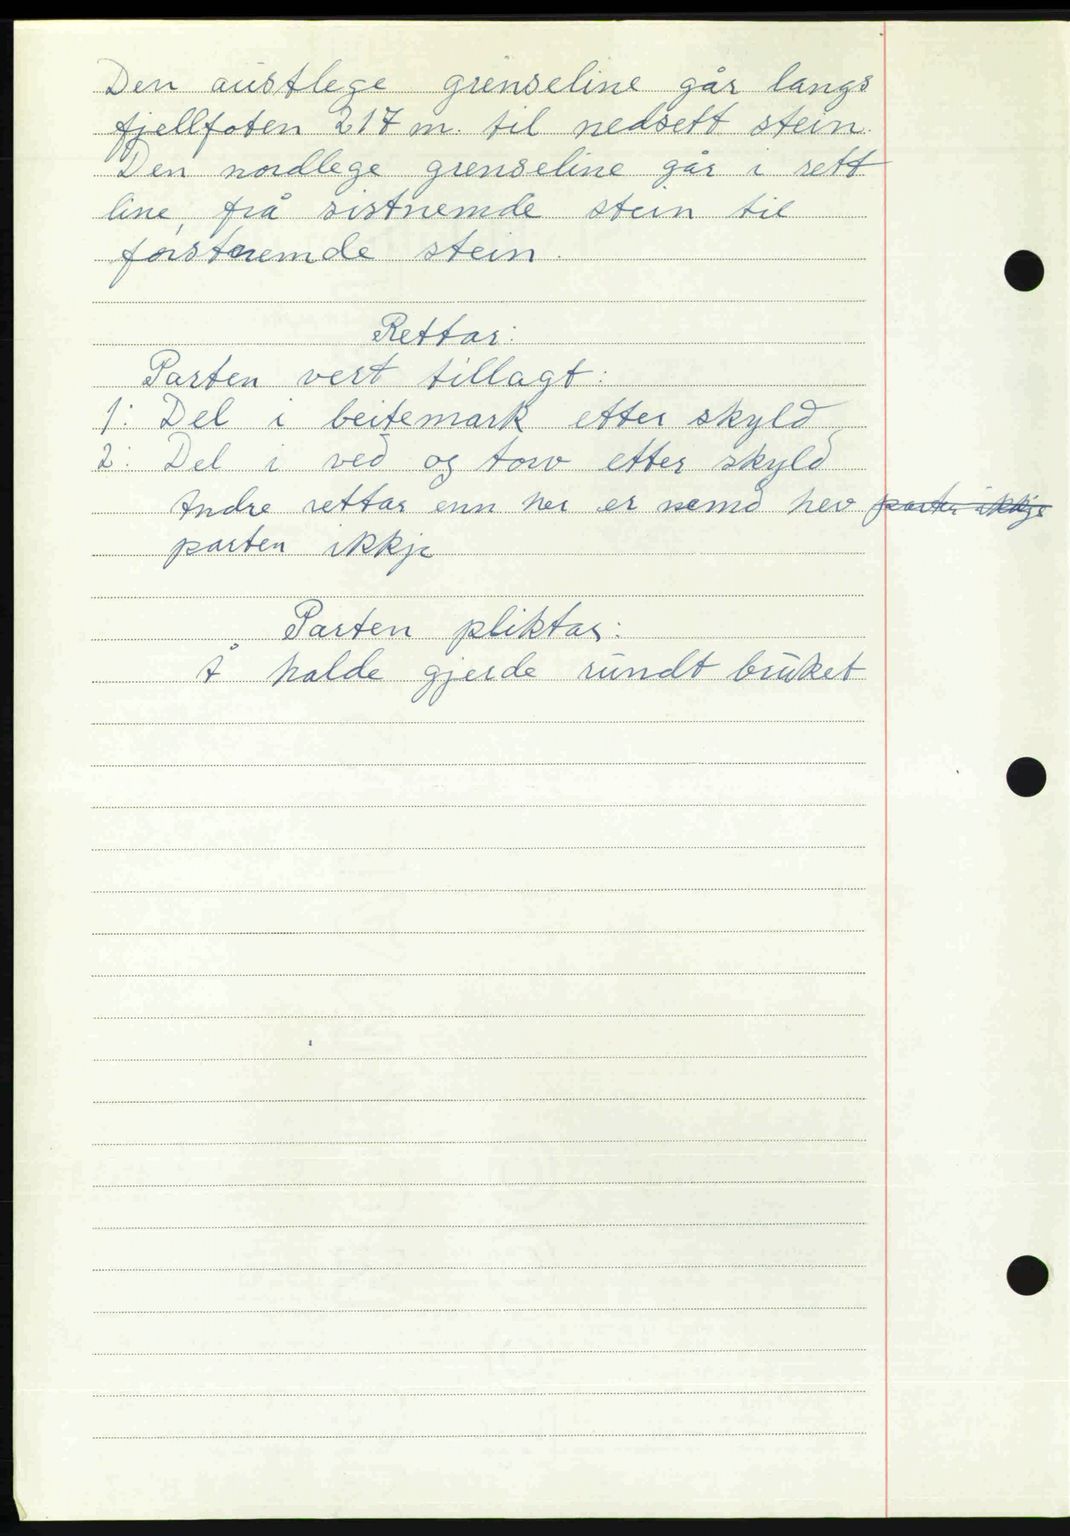 Den austlege grenseline går langs
fjellfoten 217 m. til nedsett stein.
Den nordlege grenseline går i rett
line, frå sistnemde stein til
førstnemde stein.
Rettar:
Parten vert tillagt:
1: Del i beitemark etter skyld
2: Del i ved og torv etter skyld
Andre rettar enn her er nemd hev parten ikkje
parten ikkje
Parten pliktar:
Å halde gjerde rundt bruket